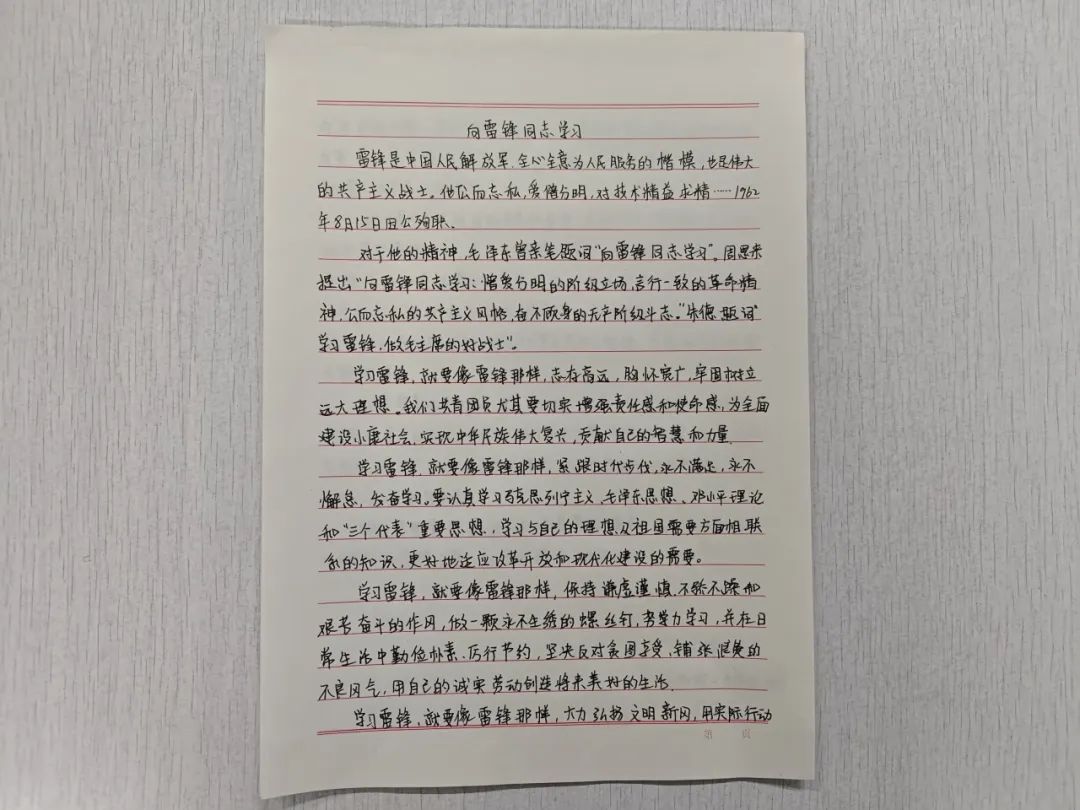 向雷锋同志学习
雷锋是中国人民解放军全心全意为人民服务的楷模，也是伟大
的共产主义战士。他公而忘私，爱憎分明，对技术精益求精……1962
年8月15日因公殉职。
对于他的精神，毛泽东曾亲笔题词“向雷锋同志学习”。周恩来
提出“向雷锋同志学习：憎爱分明的阶级立场，言行一致的革命精
神，公而忘私的共产主义风格，奋不顾身的无产阶级斗志。”朱德题词“
学习雷锋，做毛主席的好战士”。
学习雷锋，就要像雷锋那样，志存高远，胸怀宽广，牢固树立
远大理想。我们共青团员尤其要切实增强责任感和使命感，为全面
建设小康社会，实现中华民族伟大复兴，贡献自己的智慧和力量。
学习雷锋，就要像雷锋那样，紧跟时代步伐，永不满足，永不
懈怠，发奋学习。要认真学习马克思列宁主义、毛泽东思想、邓小平理论
和“三个代表”重要思想，学习与自己的理想及祖国需要方面相联
系的知识，更好地适应改革开放和现代化建设的需要。
学习雷锋，就要像雷锋那样，保持谦虚谨慎、不骄不躁和
艰苦奋斗的作风，做一颗永不生锈的螺丝钉，努力学习，并在日
常生活中勤俭朴素、厉行节约，坚决反对贪图享受、铺张浪费的
不良风气，用自己的诚实劳动创造将来美好的生活。
学习雷锋，就要像雷锋那样，大力弘扬文明新风，用实际行动
第 页